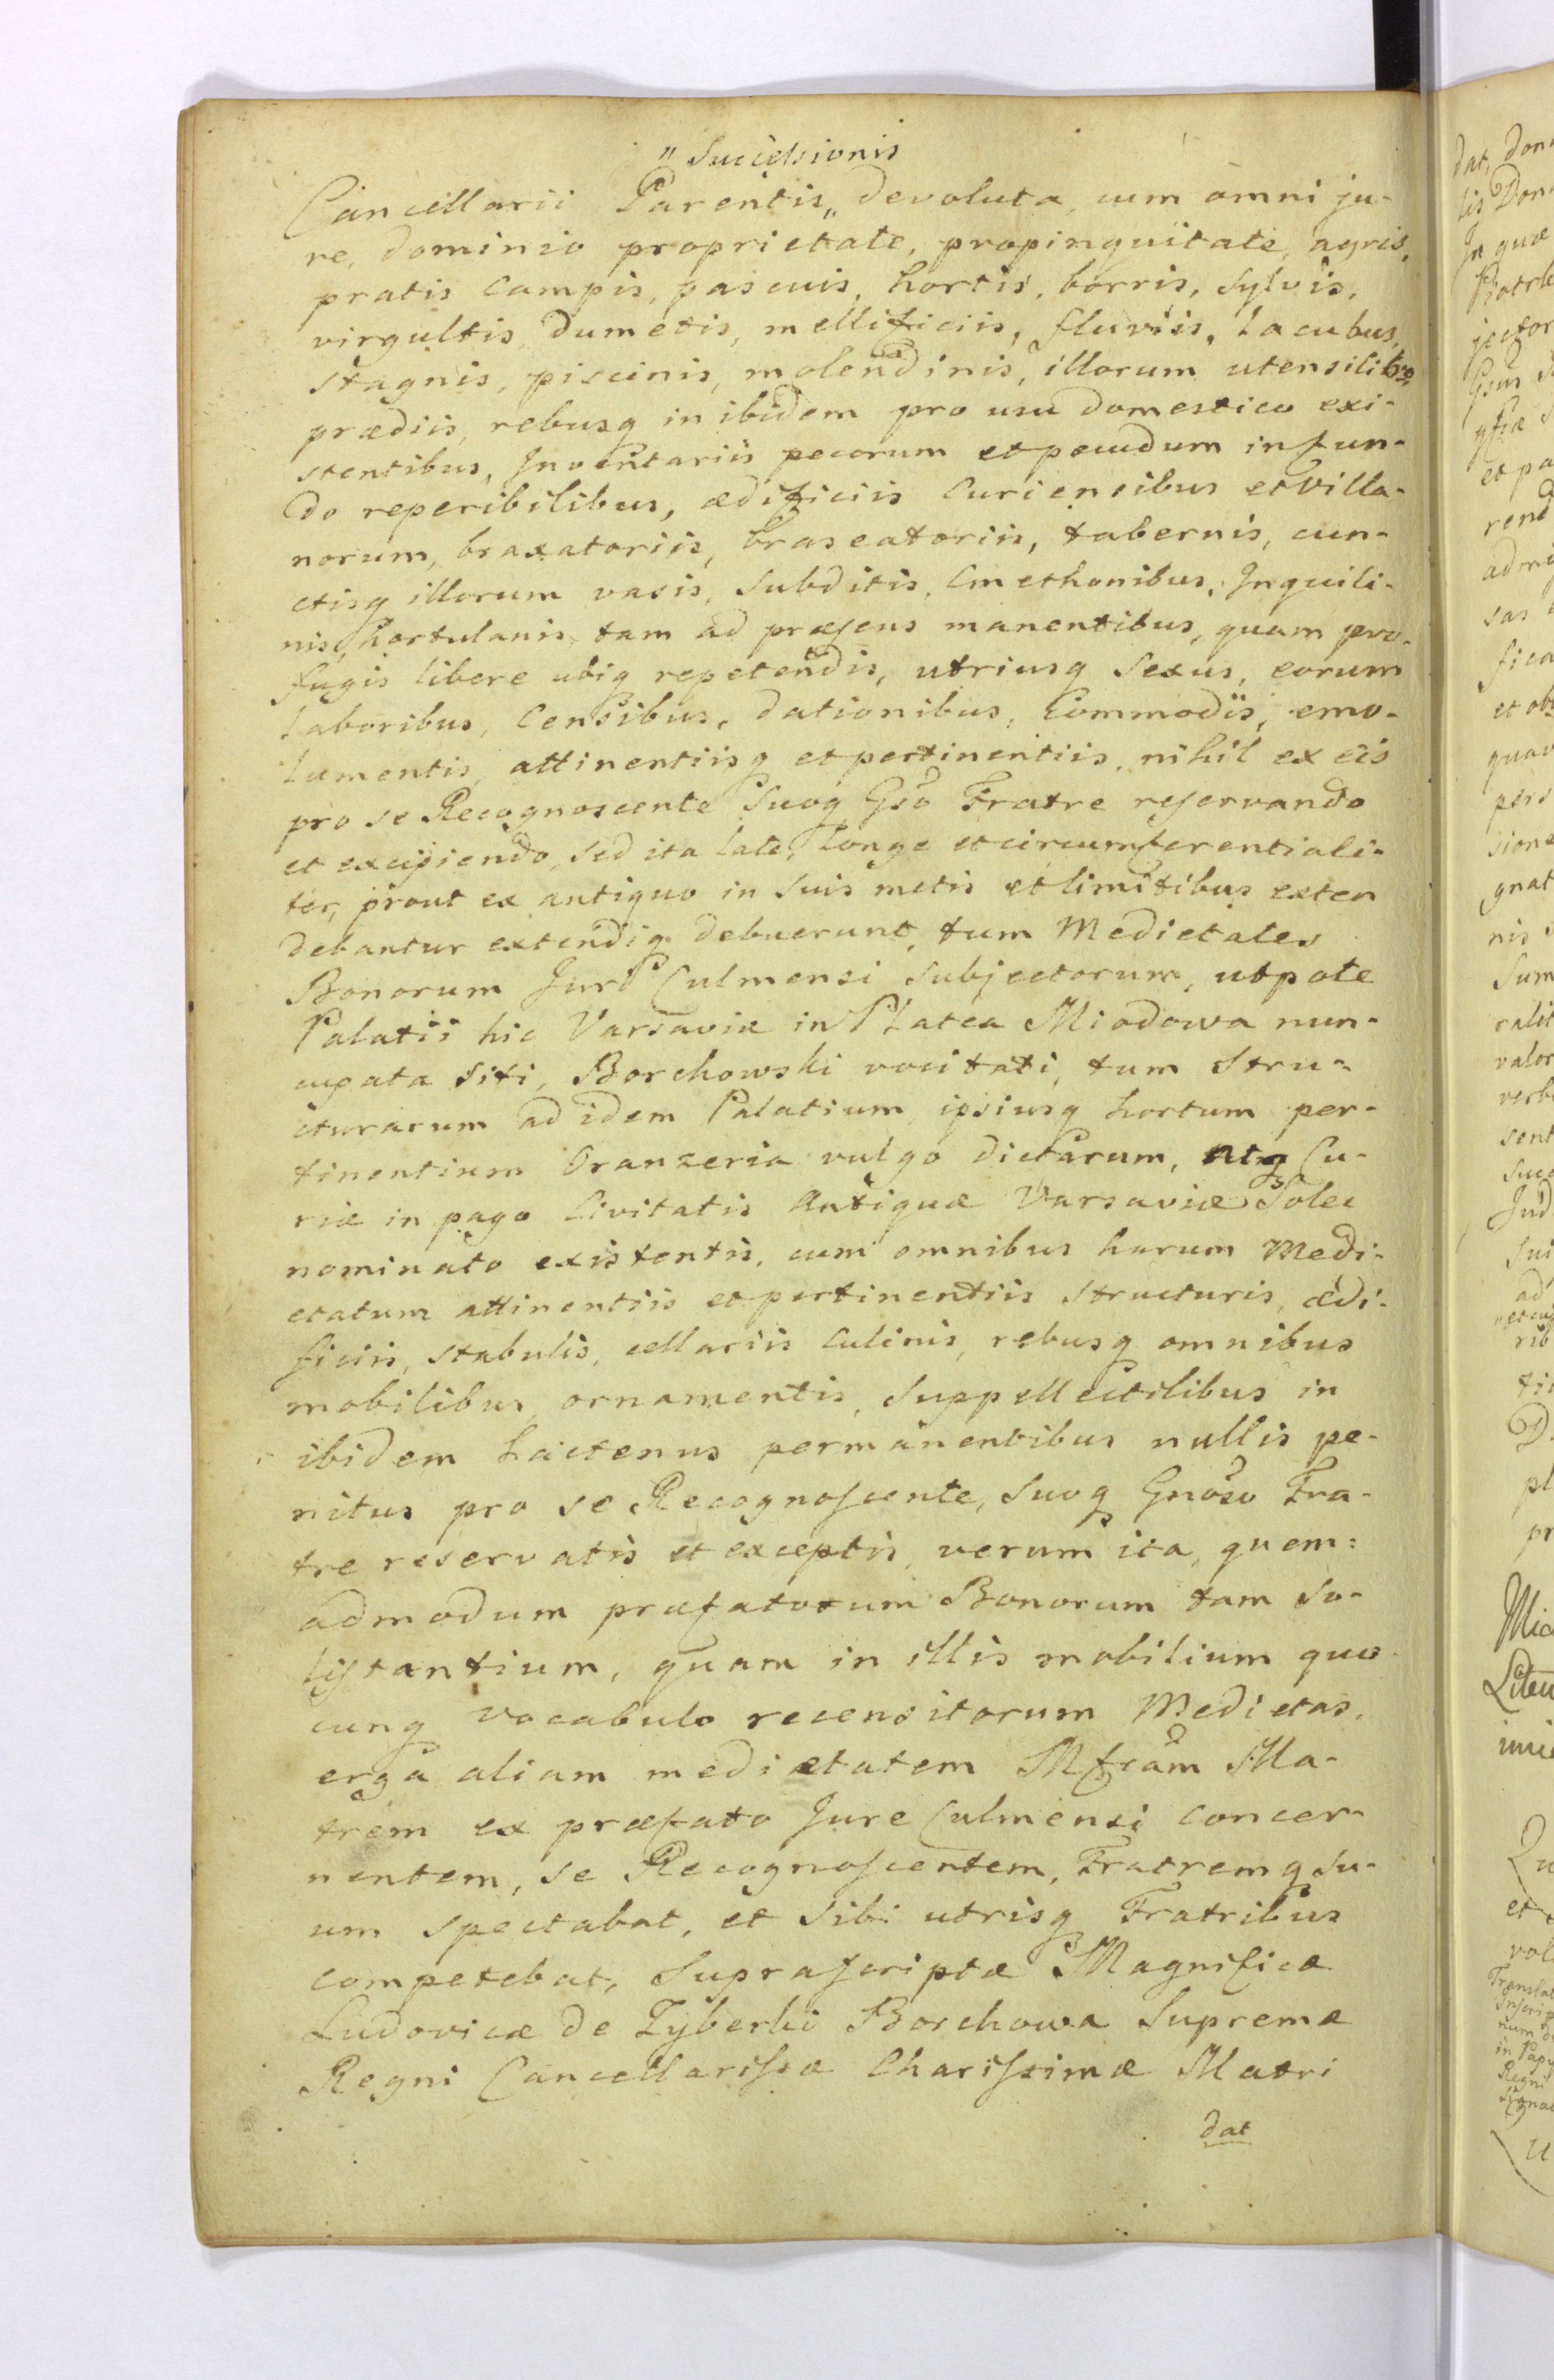 " Successionis
Cancellarii Parentis „ devoluta, cum omni ju-
re, dominio proprietate, propinquitate, agris,
pratis campis, pascuis, hortis, borris, Sylvis,
virgultis, dumetis, mellificiis, fluviis, Lacubus,
stagnis, piscinis, molendinis, illorum utensilibus,
prædiis, rebusq in ibidem pro usu domestico exi-
stentibus, Inventariis pecorum et pecudum in fun-
do reperibilibus, ædificiis Curiensibus et Villa-
norum, braxatoriis, braseatoriis, tabernis, cun-
ctisq illorum vasis, Subditis, Cmethonibus, Inquili-
nis, hortulanis tam ad præsens manentibus, quam pro-
fugis libere ubiq repetendis, utriusq Sexus, eorum
Laboribus, Censibus, dationibus, Commodis, emo-
lumentis, attinentiisq et pertinentiis, nihil ex eis
pro se Recognoscente Suoq Gso Fratre reservando
et excipiendo, sed ita late, Longe et circumferentiali-
ter, prout ex antiquo in Suis metis et limitibus exten
debantur extendiq debuerunt, tum Medietates
Bonorum Juri Culmensi Subjectorum, utpote
Palatii hic Varsaviæ in Platea Miodowa nun-
cupata Siti, Borchowski vocitati, tum Stru-
cturarum ad idem Palatium ipsiusq hortum per-
tinentium Oranzeria vulgo dictarum, atq Cu-
riæ in pago Civitatis Antiquæ Varsaviæ Solec
nominato existentis, cum omnibus harum Medi-
etatum attinentiis et pertinentiis Structuris, ædi-
ficiis, stabulis, cellariis Culinis, rebusq omnibus
mobilibus, ornamentis, Suppellectilibus in
ibidem hactenus permanentibus nullis pe-
nitus pro se Recognoscente, Suoq Gnoso Fra-
tre reservatis et exceptis, verum ita, quem:
admodum præfatorum Bonorum tam So-
listantium, quam in illis mobilium quo
cunq vocabulo recensitorum Medietas,
erga aliam medietatem Mficam Ma-
trem ex præfato Jure Culmensi concer-
nentem, se Recognoscentem, Fratremq Su-
um Spectabat, et Sibi utrisq Fratribus
competebat, Suprascriptæ Magnificæ
Ludovicæ de Zyberki Borchowa Supremæ
Regni Cancellarissæ Charissimæ Matri
dat